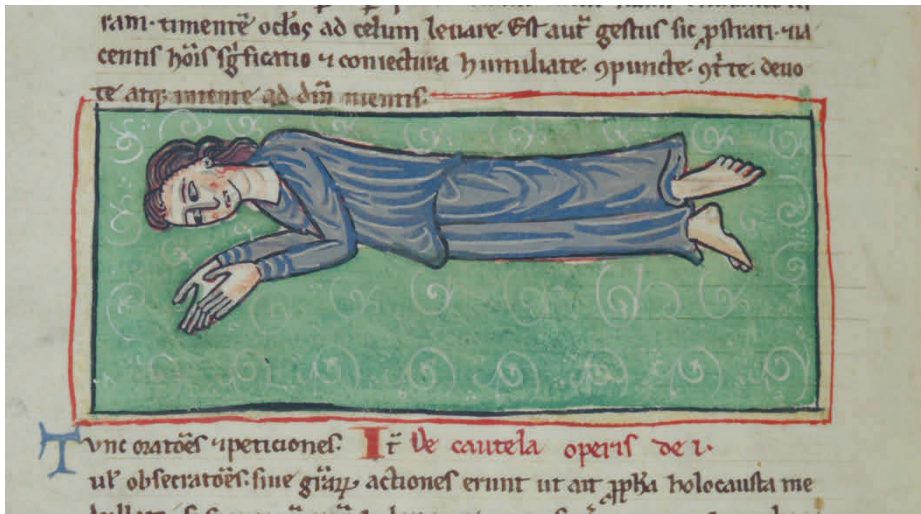 ram· timentē oclōs ad celum leuare. Est aut̄ gestus sic ꝓstrati· ⁊ ia
centis hōīs sḡficatio ⁊ coniectura humiliate. ꝯpuncte. ꝯt̄te. deuo
te atqꝫ intente ad dm̄ mentis.
Tvnc oratōes ⁊ peticiones. It̄ De cautela operis de i·
ul' obsecratōes. siue gr̄aꝝ actiones erunt ut ait ꝓpħa holocausta me